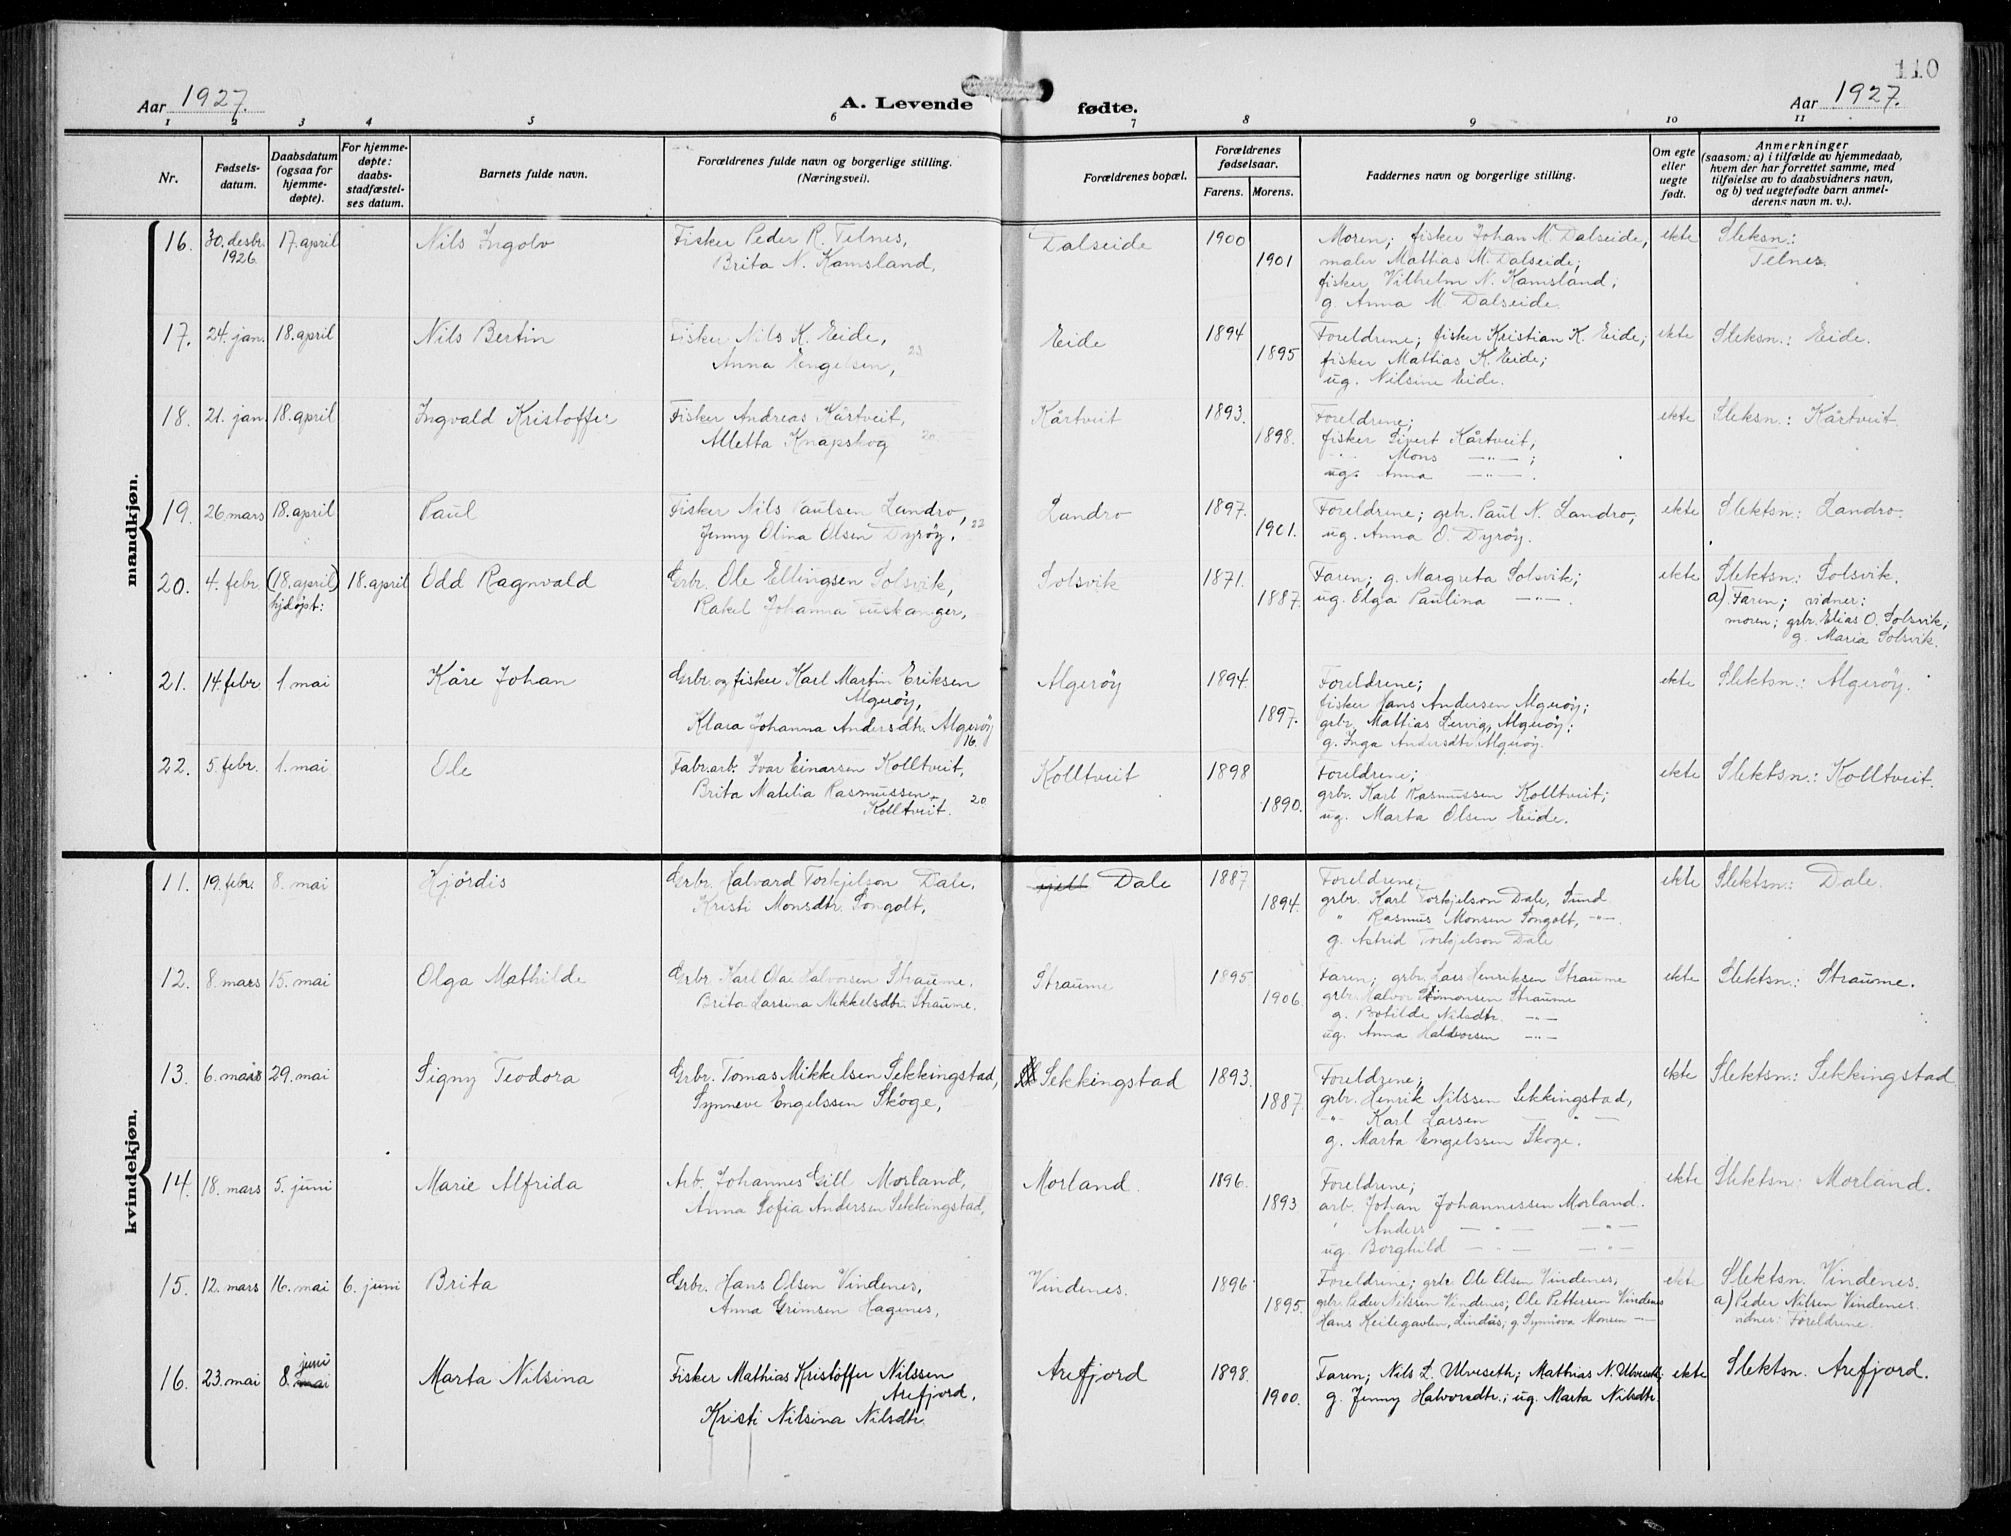 110
Aar 1927.
A. Levende fødte.
Aar 1927.
1 2 3 4 5 6 7 8 9 10 11
Nr.
Fødsels-
datum.
Daabsdatum
(ogsaa for
hjemme-
døpte).
For hjemme-
døpte:
daabs-
stadfæstel-
ses datum.
Barnets fulde navn.
Forældrenes fulde navn og borgerlige stilling.
(Næringsvei).
Forældrenes bopæl.
Forældrenes
fødselsaar.
Farens. Morens.
Faddernes navn og borgerlige stilling.
Om egte
eller
uegte
født.
Anmerkninger
(saasom: a) i tilfælde av hjemmedaab,
hvem der har forrettet samme, med
tilføielse av to daabsvidners navn,
og b) ved uegtefødte barn anmel-
derens navn m. v.).
mandkjøn.
16. 30. desbr. 17. april Nils Ingolv Fisker Peder R. Telnes, Dalseide 1900 Moren; fisker Johan M. Dalseide, ekte Sleksn.:
1926. Brita N. Kamsland, 1901 maler Mathias M. Dalseide; Telnes.
fisker Vilhelm N. Kamsland;
g. Anna M. Dalseide.
17. 24. jan. 18. april Nils Bertin Fisker Nils K. Eide, Eide 1894 Foreldrene; fisker Kristian K. Eide; ekte Sleksn.: Eide.
Anna Engelsen, 23 1895 fisker Mattias K. Eide;
ug. Nilsine Eide.
18. 21. jan 18. april Ingvald Kristoffer Fisker Andreas Kårtveit, Kårtveit 1893. Foreldrene; ekte Sleksn.: Kårtveit
Alletta Knapskog 20. 1898. fisker Sivert Kårtveit,
Mons —"— ;
ug. Anna —"— .
19. 26 mars 18. april Paul Fisker Nils Paulsen Landro, Landro 1897. Foreldrene; grbr. Paul N. Landro; ekte Slektsn: Landro.
Jenny Olina Olsen Dyrøy. 22 1901. ug. Anna O. Dyrøy.
20. 4. febr. (18. april) 18. april Odd Ragnvald Grbr. Ole Ellingsen Solsvik, Solsvik 1871. Faren; g. Margreta Solsvik; ekte Slektsn: Solsvik.
hjdøpt: Rakel Johanna Tuskanger, 1887. ug. Olga Paulina —"— . a) Faren; vidner:
moren; grbr. Elias O. Solsvik;
g. Maria Solsvik.
21. 14. febr 1. mai Kåre Johan Grbr. og fisker Karl Martin Eriksen Algerøy 1894. Foreldrene; ekte Slektsn.: Algerøy.
Algerøy, fisker Jans Andersen Algerøy;
Klara Johanna Andersdtr. Algerøy 1897. grbr. Mattias Lervig, Algerøy;
16. g. Inga Andersdtr. Algerøy.
22. 5. febr. 1. mai Ole Fabr.arb. Ivar Einarsen Kolltveit, Kolltveit 1898 Foreldrene; ekte Slektsn.: Kolltveit.
Brita Matelia Rasmussen 20 1890. grbr. Karl Rasmussen Kolltveit;
Kolltveit. ug. Marta Olsen Eide.
kvindekjøn.
11. 19. febr. 8. mai Hjördis Grbr. Halvard Torkjelson Dale, Fjell Dale 1887 Foreldrene; ekte Slektsn: Dale.
Kristi Monsdtr. Songolt, 1894. grbr. Karl Torkjelson Dale, Sund
" Rasmus Monsen Songolt, —"—.
g. Astrid Torkjelson Dale
12. 8. mars 15. mai Olga Mathilde Grbr Karl Olai Halvorsen Straume. Straume 1895 Faren; grbr. Lars Henriksen Straume ekte Slektsn: Straume.
Brita Larsina Mikkelsdtr. Straume. 1906. grbr. Halvor Simonsen Straume
g. Botilde Nilsdtr. —"—
ug. Anna Haldvorsen —"—
13. 6. mars 29. mai Signy Teodora Grbr. Tomas Mikkelsen Sekkingstad, Sekkingstad 1893. Foreldrene; ekte Slektsn: Sekkingstad
Synneve Engelssen Skoge, 1887. grbr. Henrik Nilssen Sekkingstad,
—"— Karl Larsen — " —
g. Marta Engelssen Skoge.
14. 18. mars 5. juni Marie Alfrida Arb. Johannes Gill Morland, Morland. 1896. Foreldrene; ekte Slektsn: Morland.
Anna Sofia Andersen Sekkingstad, 1893 arb. Johan Johannessen Morland.
' Anders — " — — " —
ug. Borghild — " — — " —
15. 12. mars 16. mai 6. juni Brita Grbr. Hans Olsen Vindenes, Vindenes. 1896 Foreldrene; grbr Ole Olsen Vindenes, ekte Slektsn. Vindenes.
Anna Grimsen Hagenes, 1895. grbr. Peder Nilssen Vindenes; Ole Pettersen Vindenes a) Peder Nilsen Vindenes.
Hans Keilegavlen, Lindås; g. Synnöva Monsen —"— vidner: Foreldrene.
juni
16. 23. mai 8. mai Marta Nilsina Fisker Mathias Kristoffer Nilssen Arefjord 1898. Faren; Nils L. Ulveseth; Matthias N. Ulveseth; ekte Slektsn. Arefjord.
Arefjord, 1900. g. Jenny Halvorsdtr.; ug. Marta Nilsdtr.
Kristi Nilsina Nilsdtr.